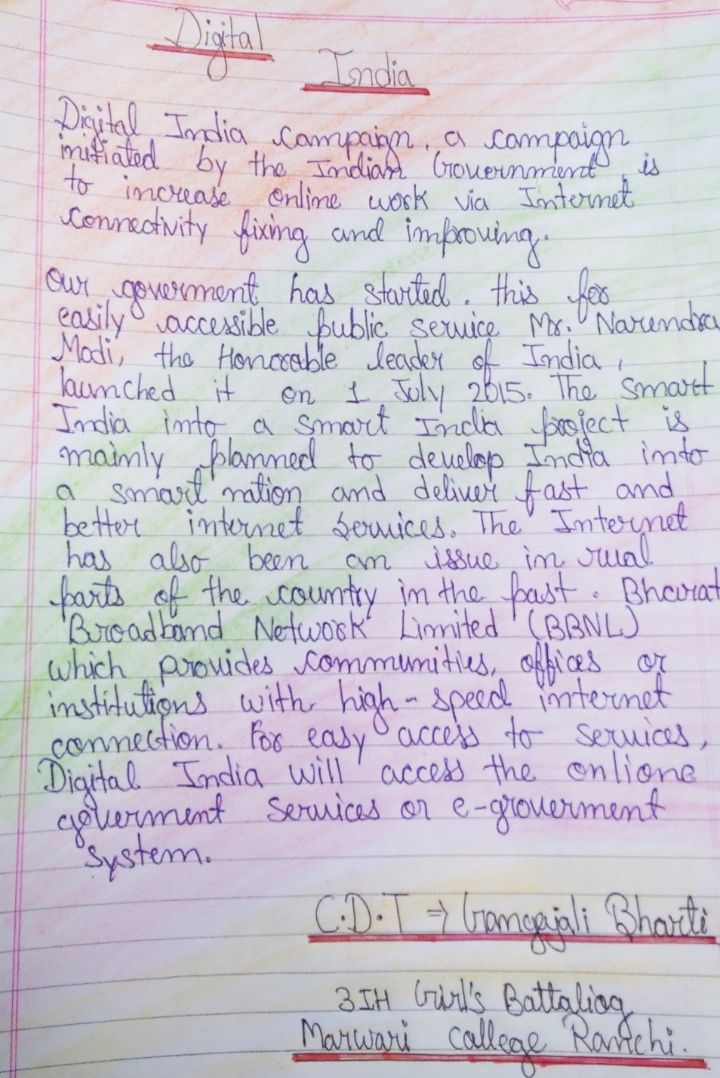 Digital
India
Digital India campaign, a campaign
initiated by the Indian Government is
to increase online work via Internet
connectivity fixing and improving.
Our goverment has started. this for
easily accessible public service Mr. Narendra
Modi, the Honorable leader of India,
launched it on 1 July 2015. The smart
India into a smart India project is
mainly planned to develop India into
a smart nation and deliver fast and
better internet services. The Internet
has also been an issue in rual
parts of the country in the past. Bharat
Broadband Network Limited (BBNL)
which provides communities, offices or
institutions with high-speed internet
connection. For easy access to services,
Digital India will access the onlione
goverment services or e-grouerment
system.
C.D.T ⇒ Gangajali Bharti
3JH Girl's Battaliog
Marwari College Ranchi.